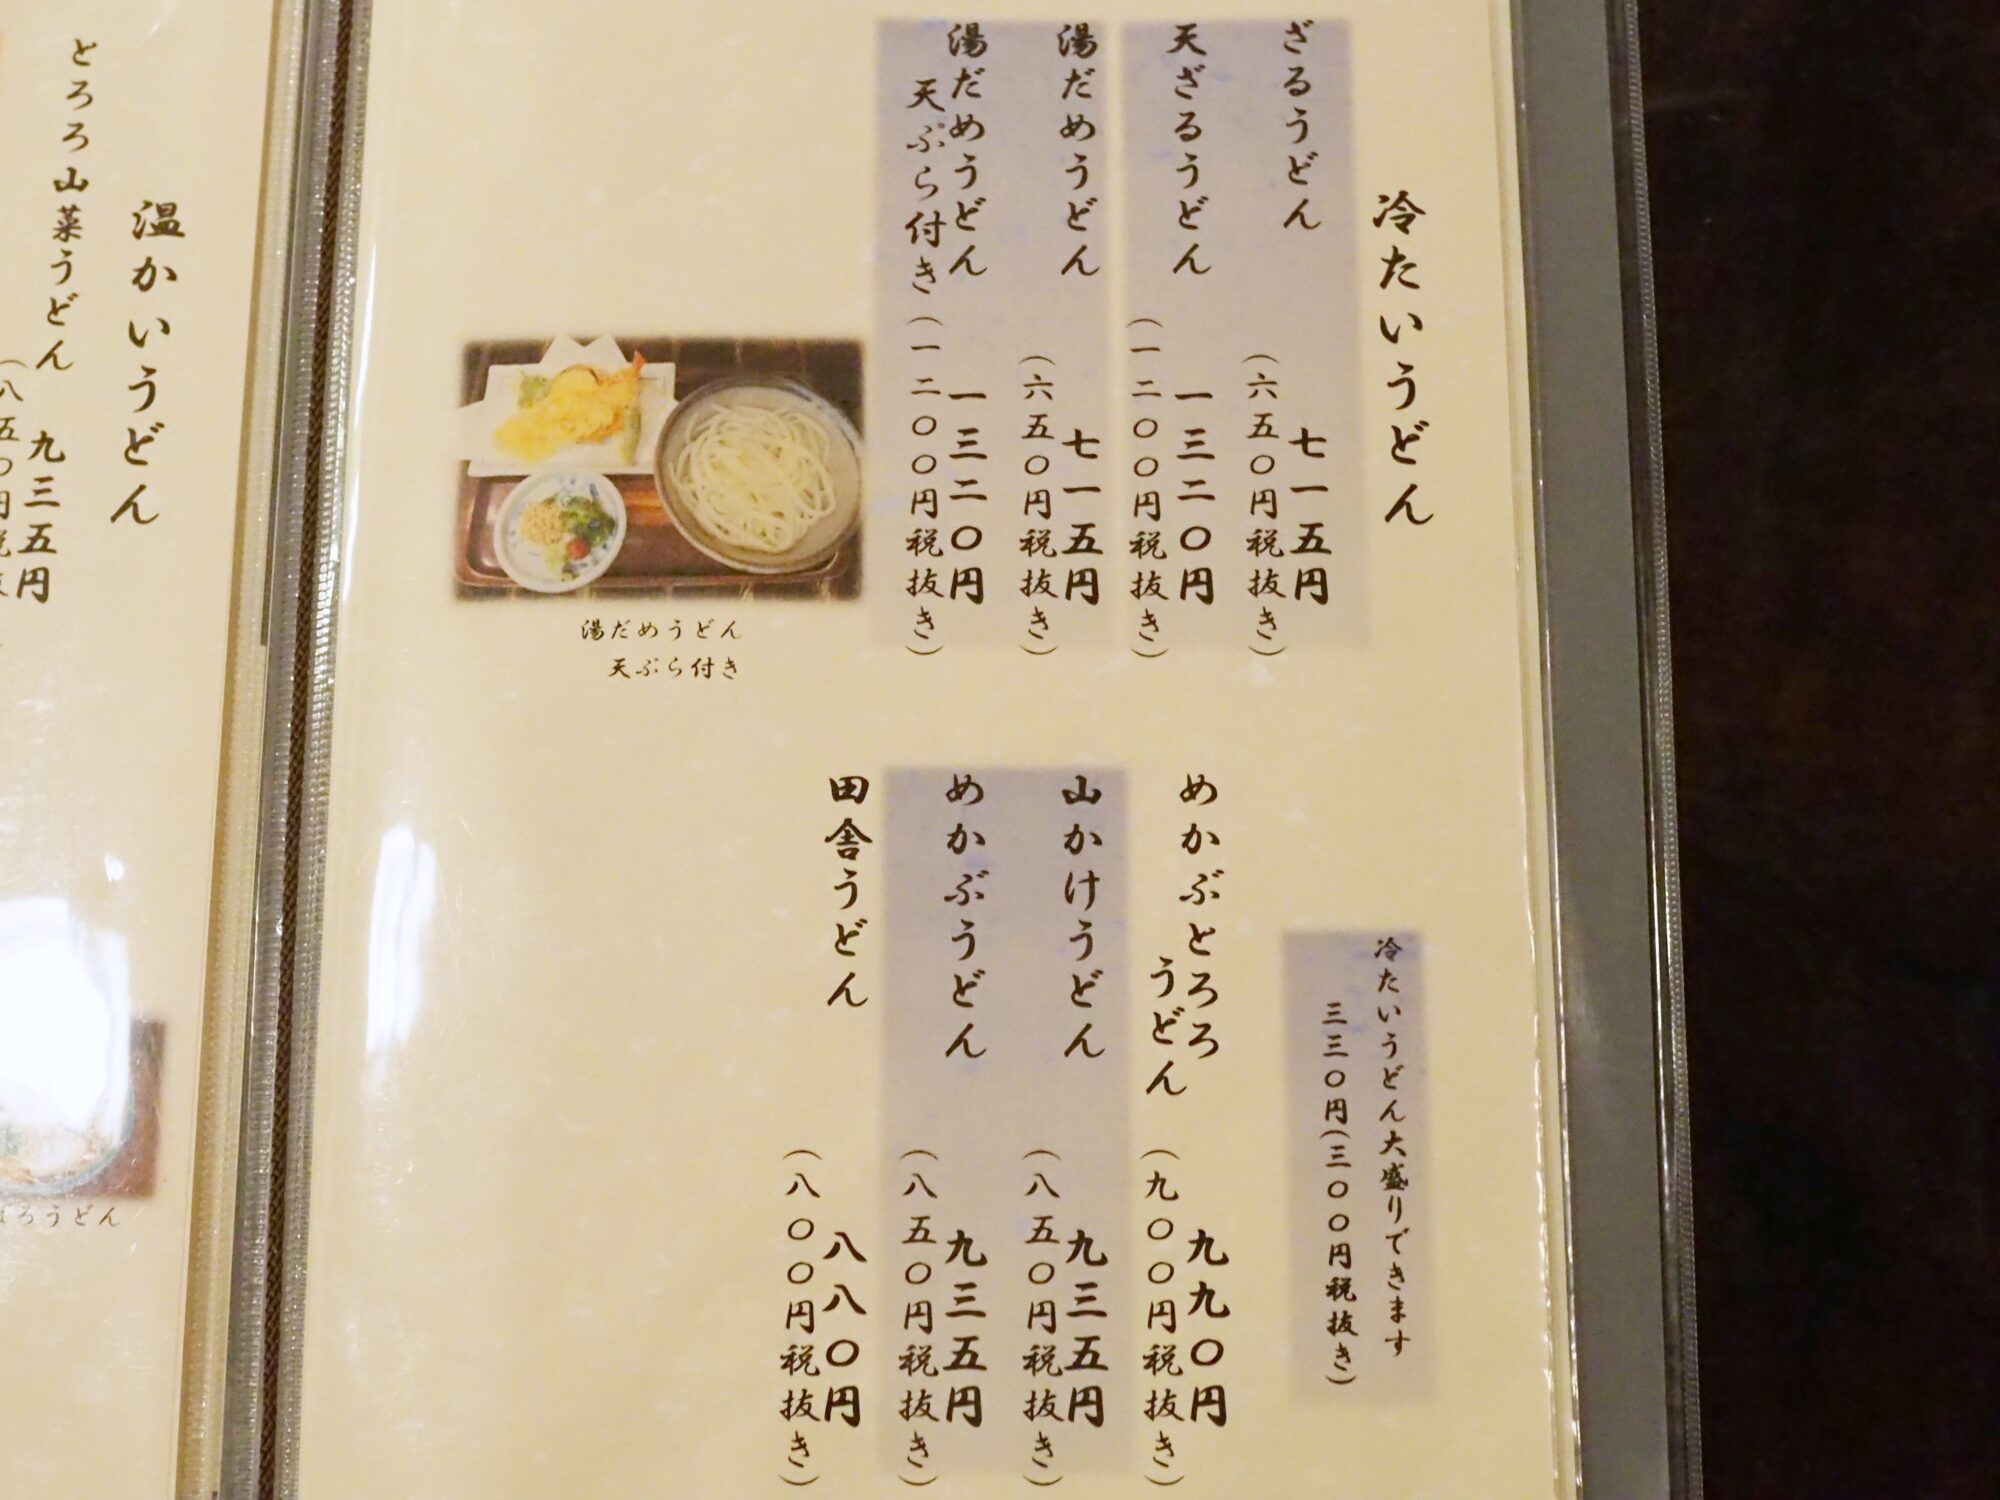 冷たいうどん
ざるうどん
七一五円
(六五〇円税抜き)
天ざるうどん
一三二〇円
(一二〇〇円税抜き)
湯だめうどん
七一五円
(六五〇円税抜き)
湯だめうどん
天ぷら付き
一三二〇円
(一二〇〇円税抜き)
湯だめうどん
天ぷら付き
冷たいうどん大盛りできます
三三〇円(三〇〇円税抜き)
めかぶとろろ
うどん
九九〇円
(九〇〇円税抜き)
山かけうどん
九三五円
(八五〇円税抜き)
めかぶうどん
九三五円
(八五〇円税抜き)
田舎うどん
八八〇円
(八〇〇円税抜き)
温かいうどん
とろろ山菜うどん
九三五円
ろうどん